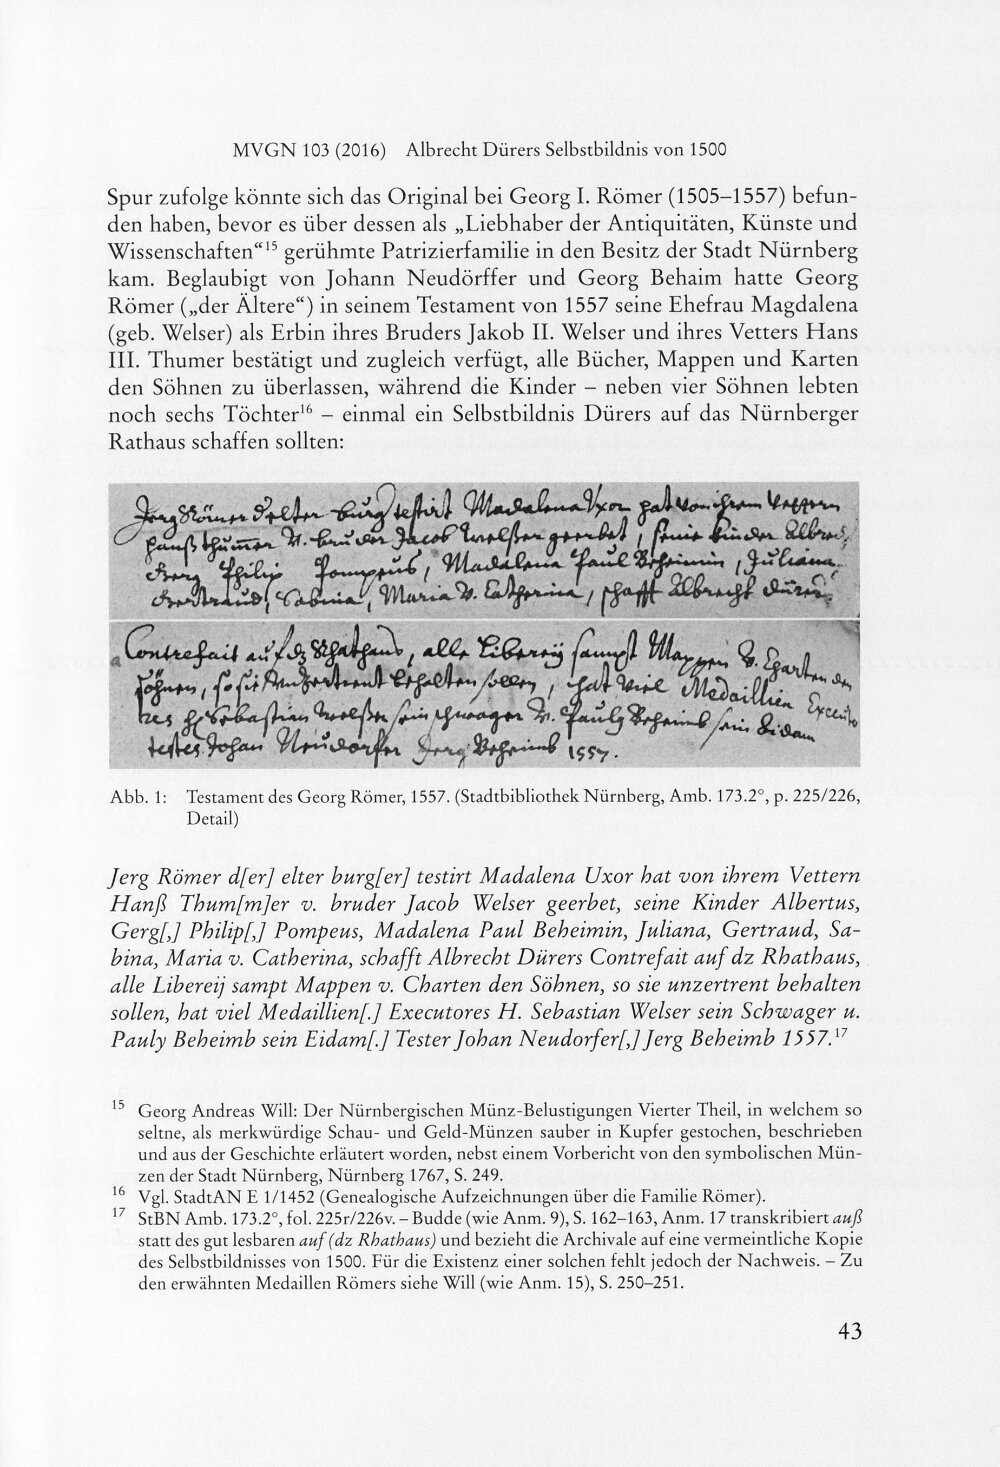 MVGN 103 (2016) Albrecht Dürers Selbstbildnis von 1500
Spur zufolge könnte sich das Original bei Georg I. Römer (1505–1557) befun-
den haben, bevor es über dessen als „Liebhaber der Antiquitäten, Künste und
Wissenschaften“15 gerühmte Patrizierfamilie in den Besitz der Stadt Nürnberg
kam. Beglaubigt von Johann Neudörffer und Georg Behaim hatte Georg
Römer („der Ältere“) in seinem Testament von 1557 seine Ehefrau Magdalena
(geb. Welser) als Erbin ihres Bruders Jakob II. Welser und ihres Vetters Hans
III. Thumer bestätigt und zugleich verfügt, alle Bücher, Mappen und Karten
den Söhnen zu überlassen, während die Kinder – neben vier Söhnen lebten
noch sechs Töchter16 – einmal ein Selbstbildnis Dürers auf das Nürnberger
Rathaus schaffen sollten:
Jerg Römer d elter burg testirt Madalena Uxor hat von ihrem Vettern
Hanß Thummer v. bruder Jacob Welßer geerbet, seine Kinder
Gerg Philip Pompeus, Madalena Paul Beheimin, Juliana
Gertraud, Sabina, Maria v. Catherina, schafft Albrecht Dürers
Contrefait auf dz Rhathaus, alle Liberey sampt Mappen v. Charten den
Söhnen, so sie unzertrent behalten sollen, hat viel Medaillien
Sebastian Welßer sein schwager v. Pauly Beheimb sein Eidam
testes Johan Neudorfer Jerg Beheimb 1557.
Abb. 1: Testament des Georg Römer, 1557. (Stadtbibliothek Nürnberg, Amb. 173.2°, p. 225/226,
Detail)
Jerg Römer d[er] elter burg[er] testirt Madalena Uxor hat von ihrem Vettern
Hanß Thum[m]er v. bruder Jacob Welser geerbet, seine Kinder Albertus,
Gerg[,] Philip[,] Pompeus, Madalena Paul Beheimin, Juliana, Gertraud, Sa-
bina, Maria v. Catherina, schafft Albrecht Dürers Contrefait auf dz Rhathaus,
alle Libereij sampt Mappen v. Charten den Söhnen, so sie unzertrent behalten
sollen, hat viel Medaillien[.] Executores H. Sebastian Welser sein Schwager u.
Pauly Beheimb sein Eidam[.] Tester Johan Neudorfer[,] Jerg Beheimb 1557.17
15 Georg Andreas Will: Der Nürnbergischen Münz-Belustigungen Vierter Theil, in welchem so
seltne, als merkwürdige Schau- und Geld-Münzen sauber in Kupfer gestochen, beschrieben
und aus der Geschichte erläutert worden, nebst einem Vorbericht von den symbolischen Mün-
zen der Stadt Nürnberg, Nürnberg 1767, S. 249.
16 Vgl. StadtAN E 1/1452 (Genealogische Aufzeichnungen über die Familie Römer).
17 StBN Amb. 173.2°, fol. 225r/226v. – Budde (wie Anm. 9), S. 162–163, Anm. 17 transkribiert auß
statt des gut lesbaren auf (dz Rhathaus) und bezieht die Archivale auf eine vermeintliche Kopie
des Selbstbildnisses von 1500. Für die Existenz einer solchen fehlt jedoch der Nachweis. – Zu
den erwähnten Medaillen Römers siehe Will (wie Anm. 15), S. 250–251.
43